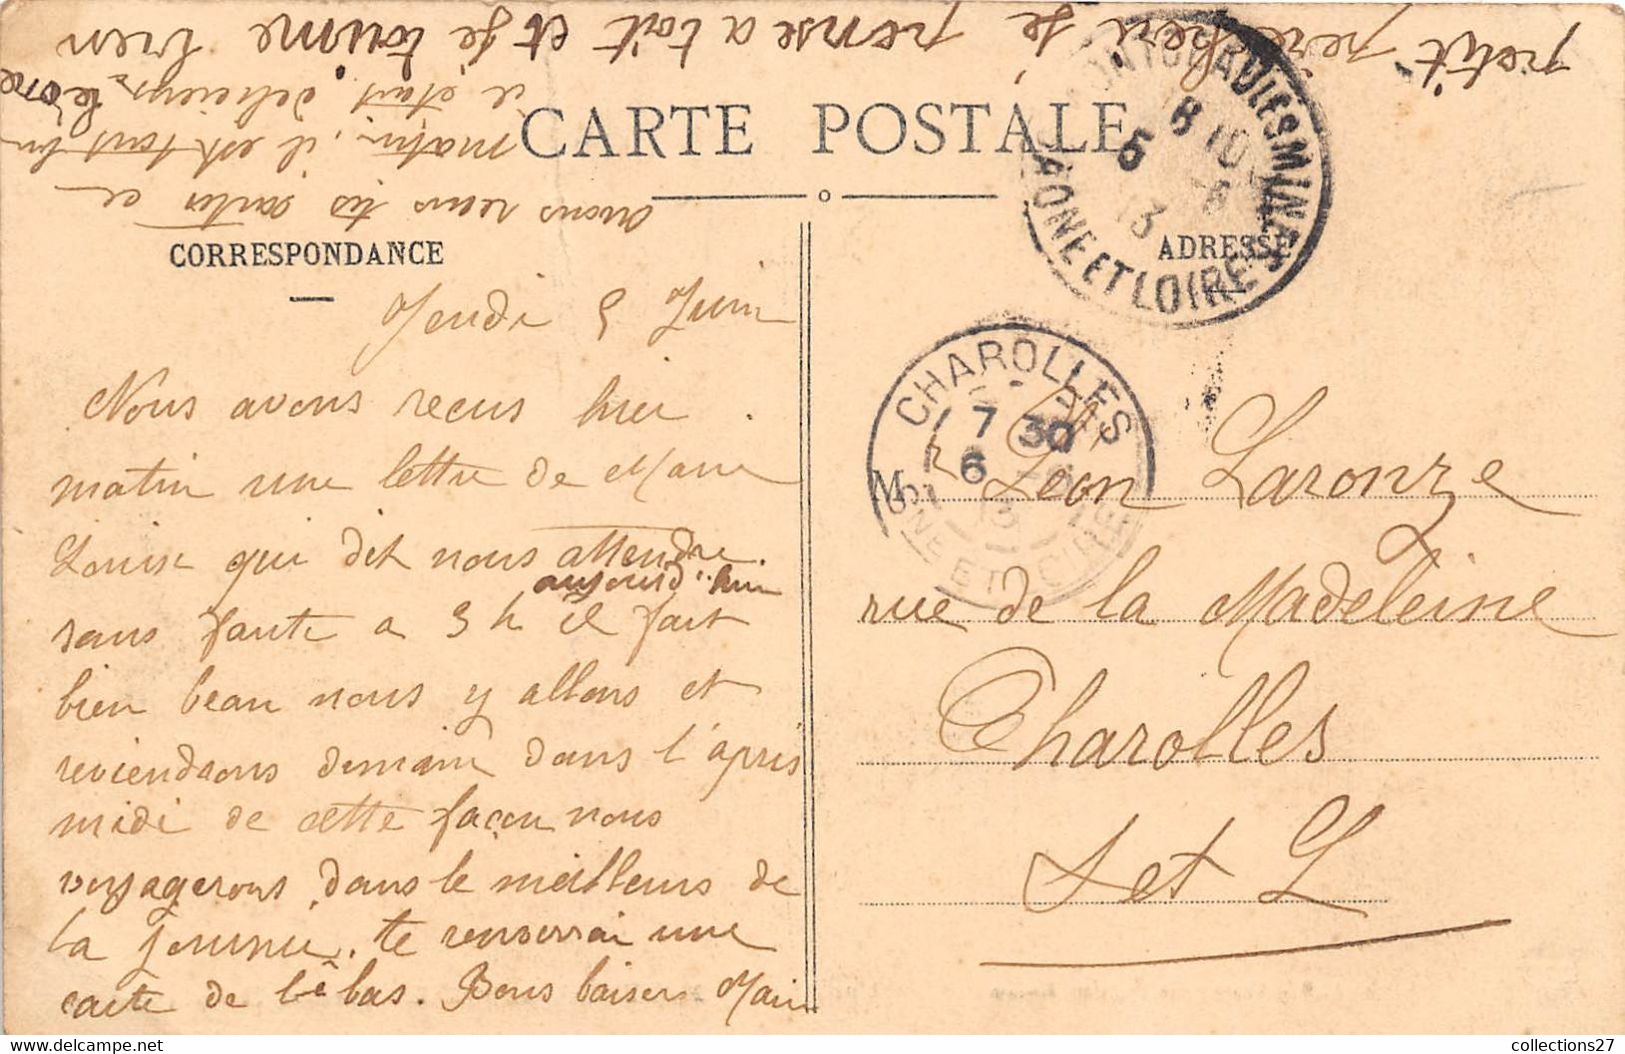 petit père chéri je pense a toit et je t'aime bien
avons reçus tes cartes ce
matin, il est tout
il était délicieux. Léone
CARTE POSTALE
CORRESPONDANCE
ADRESSE
MONTCEAU LES MINES
8 10
5
13
SAONE ET LOIRE
CHAROLLES
7 30
6
13
SAONE ET LOIRE
Jendi 5 Juin
Nous avons recus hier
matin une lettre de Marie
Louise qui dit nous attendre
aujourd'hui
sans faute a 3 h il fait
bien beau nous y allons et
reviendrons demain dans l'après
midi de cette façon nous
voyagerons dans le meilleurs de
la journée. te renverrai une
carte de là bas. Bons baisers Marie
Mr Léon Laronze
rue de la Madeleine
Charolles
S et L
collections27